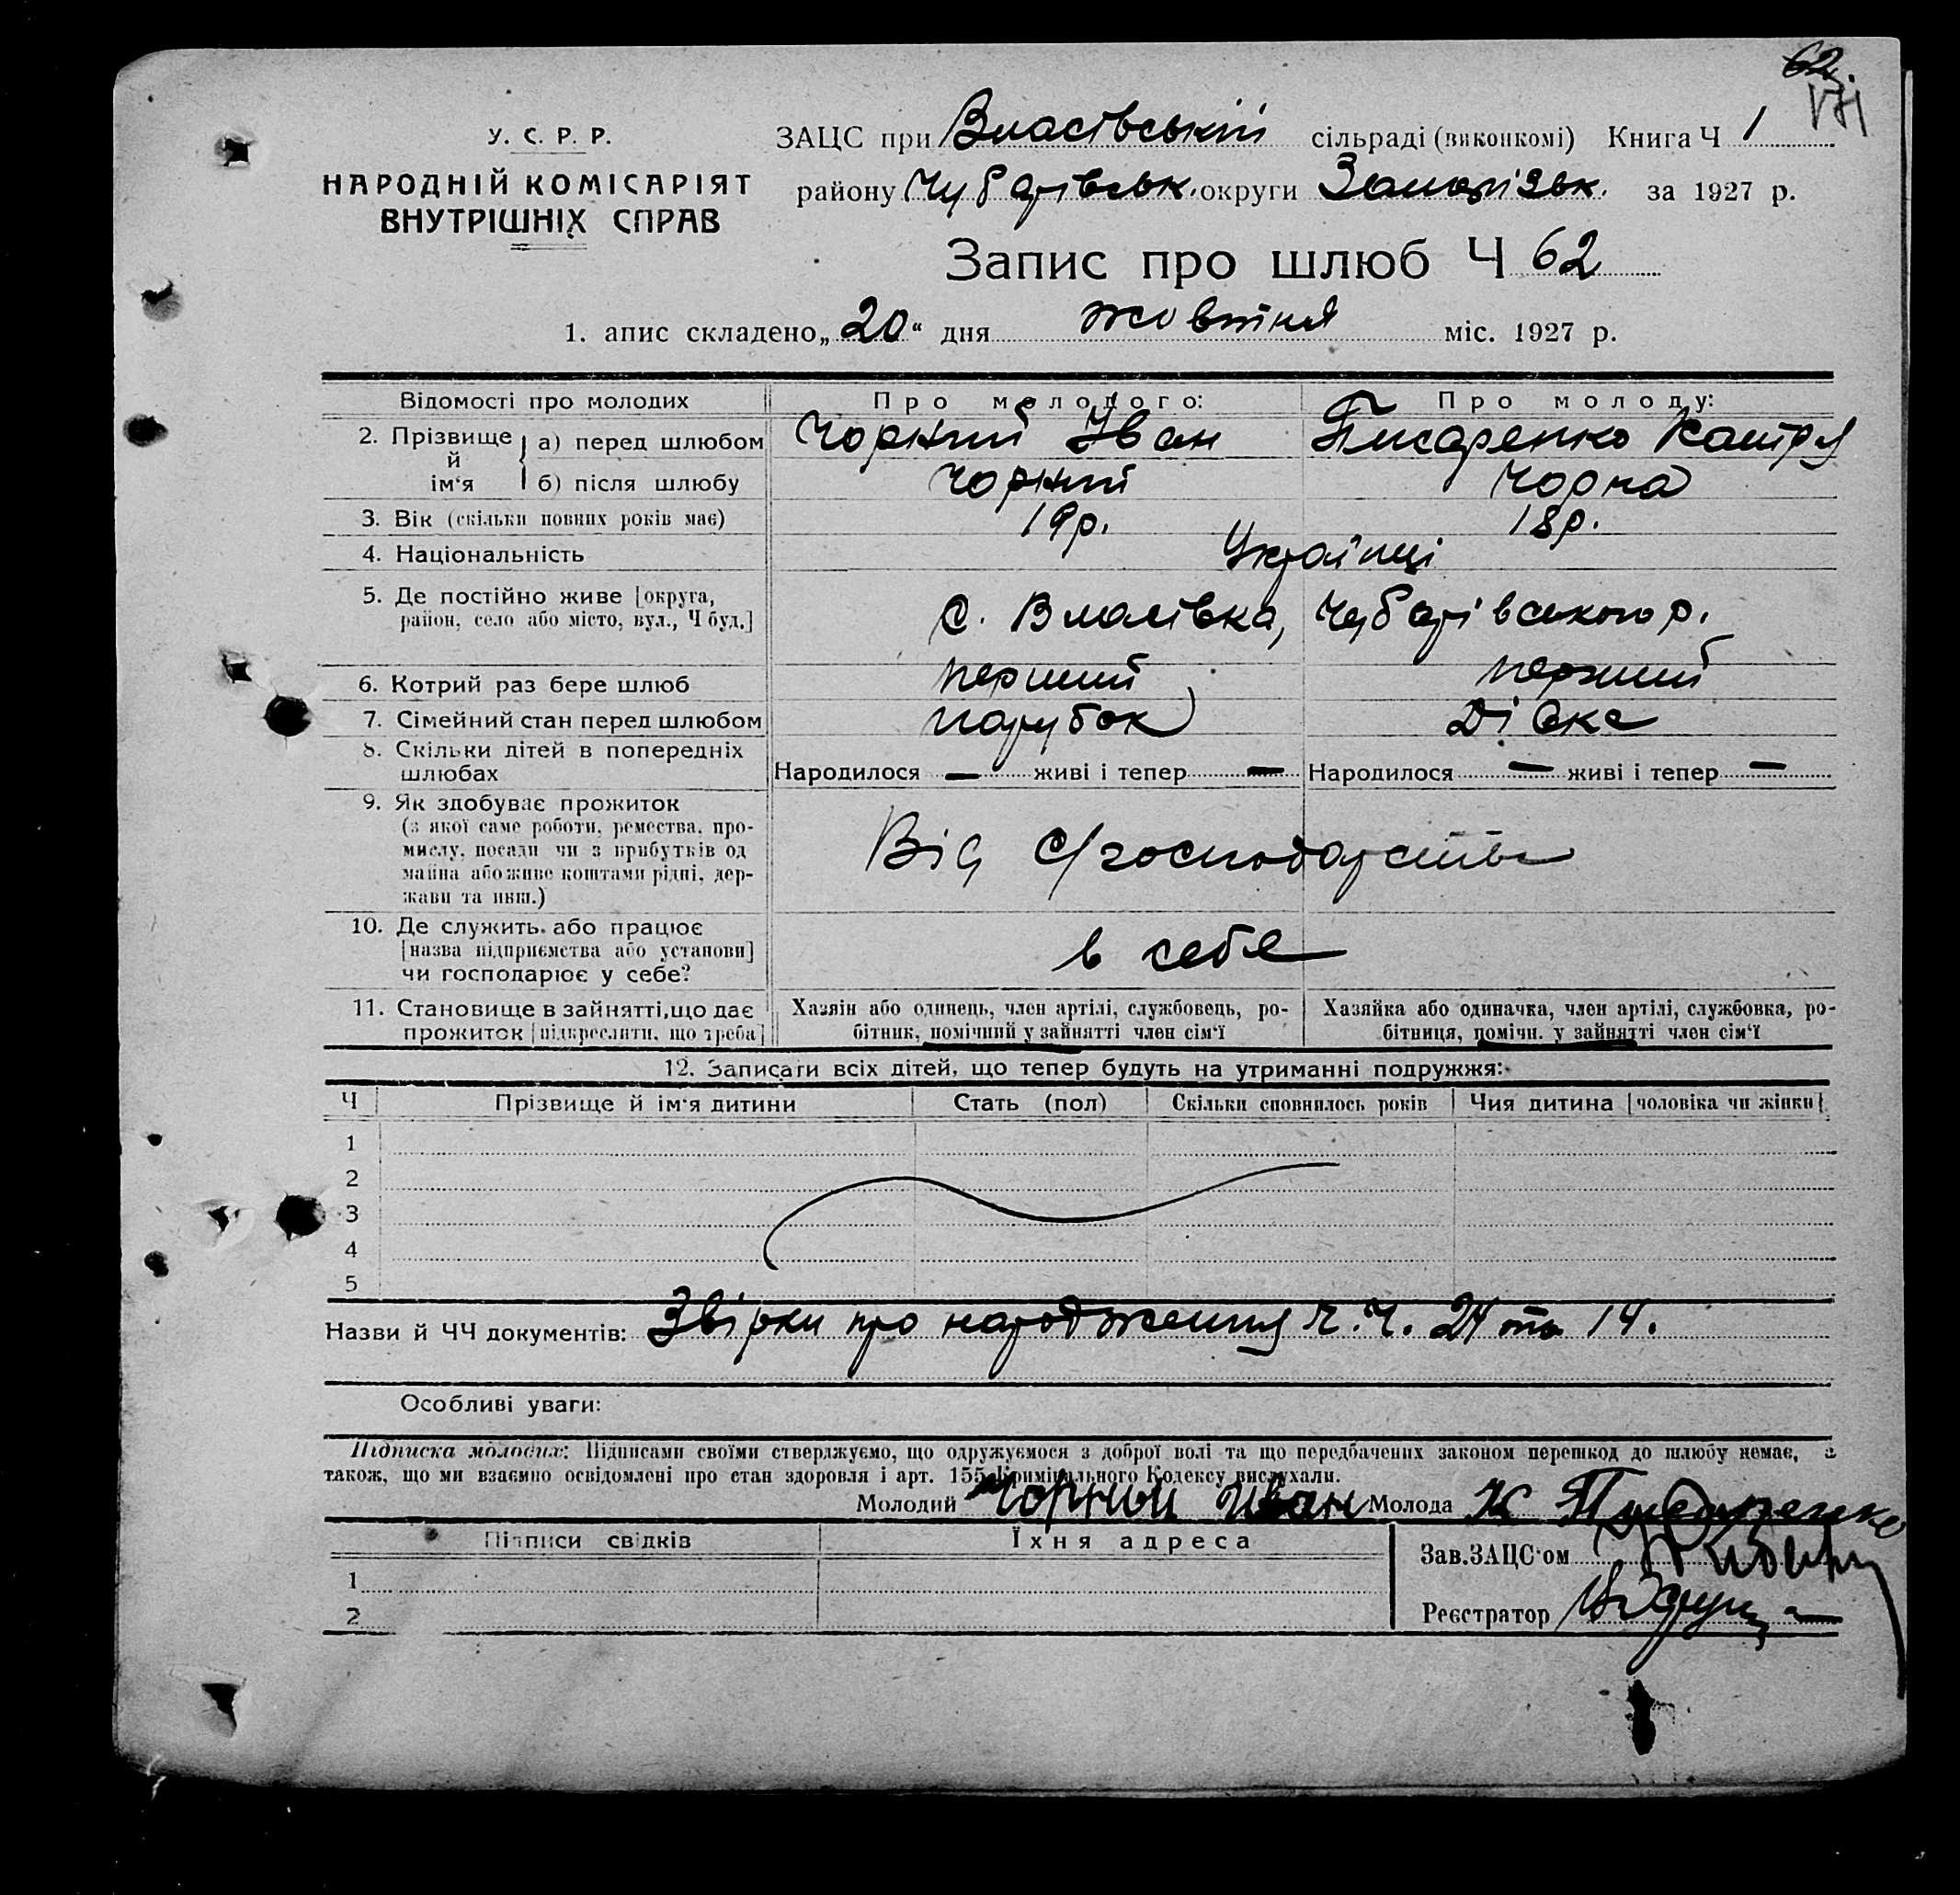 62.
171
У. С. Р. Р.
НАРОДНІЙ КОМІСАРІЯТ
ВНУТРІШНІХ СПРАВ
ЗАЦС при Власівській сільраді (виконкомі) Книга Ч 1
району Чубарівськ. округи Запорізьк. за 1927 р.
Запис про шлюб Ч 62
1. апис складено „20“ дня жовтня міс. 1927 р.
Відомості про молодих Про молодого: Про молоду:
2. Прізвище й ім‘я а) перед шлюбом Чорний Іван Писаренко Катря
б) після шлюбу Чорний Чорна
3. Вік (скільки повних років має) 19р. 18р.
4. Національність Українці
5. Де постійно живе [округа,
район, село або місто, вул., Ч буд.] С. Власівка, Чубарівського р.
6. Котрий раз бере шлюб перший перший
7. Сімейний стан перед шлюбом парубок дівка
8. Скільки дітей в попередніх
шлюбах Народилося — живі і тепер — Народилося — живі і тепер —
9. Як здобуває прожиток
(з якої саме роботи, ремества, про-
мислу, посади чи з прибутків од
майна або живе коштами рідні, дер-
жави та инш.)
Від с/господарства
10. Де служить або працює
[назва підприємства або установи]
чи господарює у себе?
в себе
11. Становище в зайнятті, що дає
прожиток [підкреслити, що треба]
Хазяін або одинець, член артілі, службовець, ро-
бітник, помічний у зайнятті член сім‘ї
Хазяйка або одиначка, член артілі, службовка, ро-
бітниця, помічн. у зайнятті член сім‘ї
12. Записати всіх дітей, що тепер будуть на утриманні подружжя:
Ч Прізвище й ім‘я дитини Стать (пол) Скільки сповнилось років Чия дитина [чоловіка чи жінки]
1
2
3
4
5
Назви й ЧЧ документів: Звірки про народження Ч.Ч. 24 та 14.
Особливі уваги:
Підписка молодих: Підписами своїми стверджуємо, що одружуємося з доброї волі та що передбачених законом перешкод до шлюбу немає, а
також, що ми взаємно освідомлені про стан здоровля і арт. 155 Кримінального Кодексу вислухали.
Молодий Чорный Иван Молода К Писаренко
Підписи свідків Їхня адреса
Зав.ЗАЦС‘ом
1
Реєстратор
2